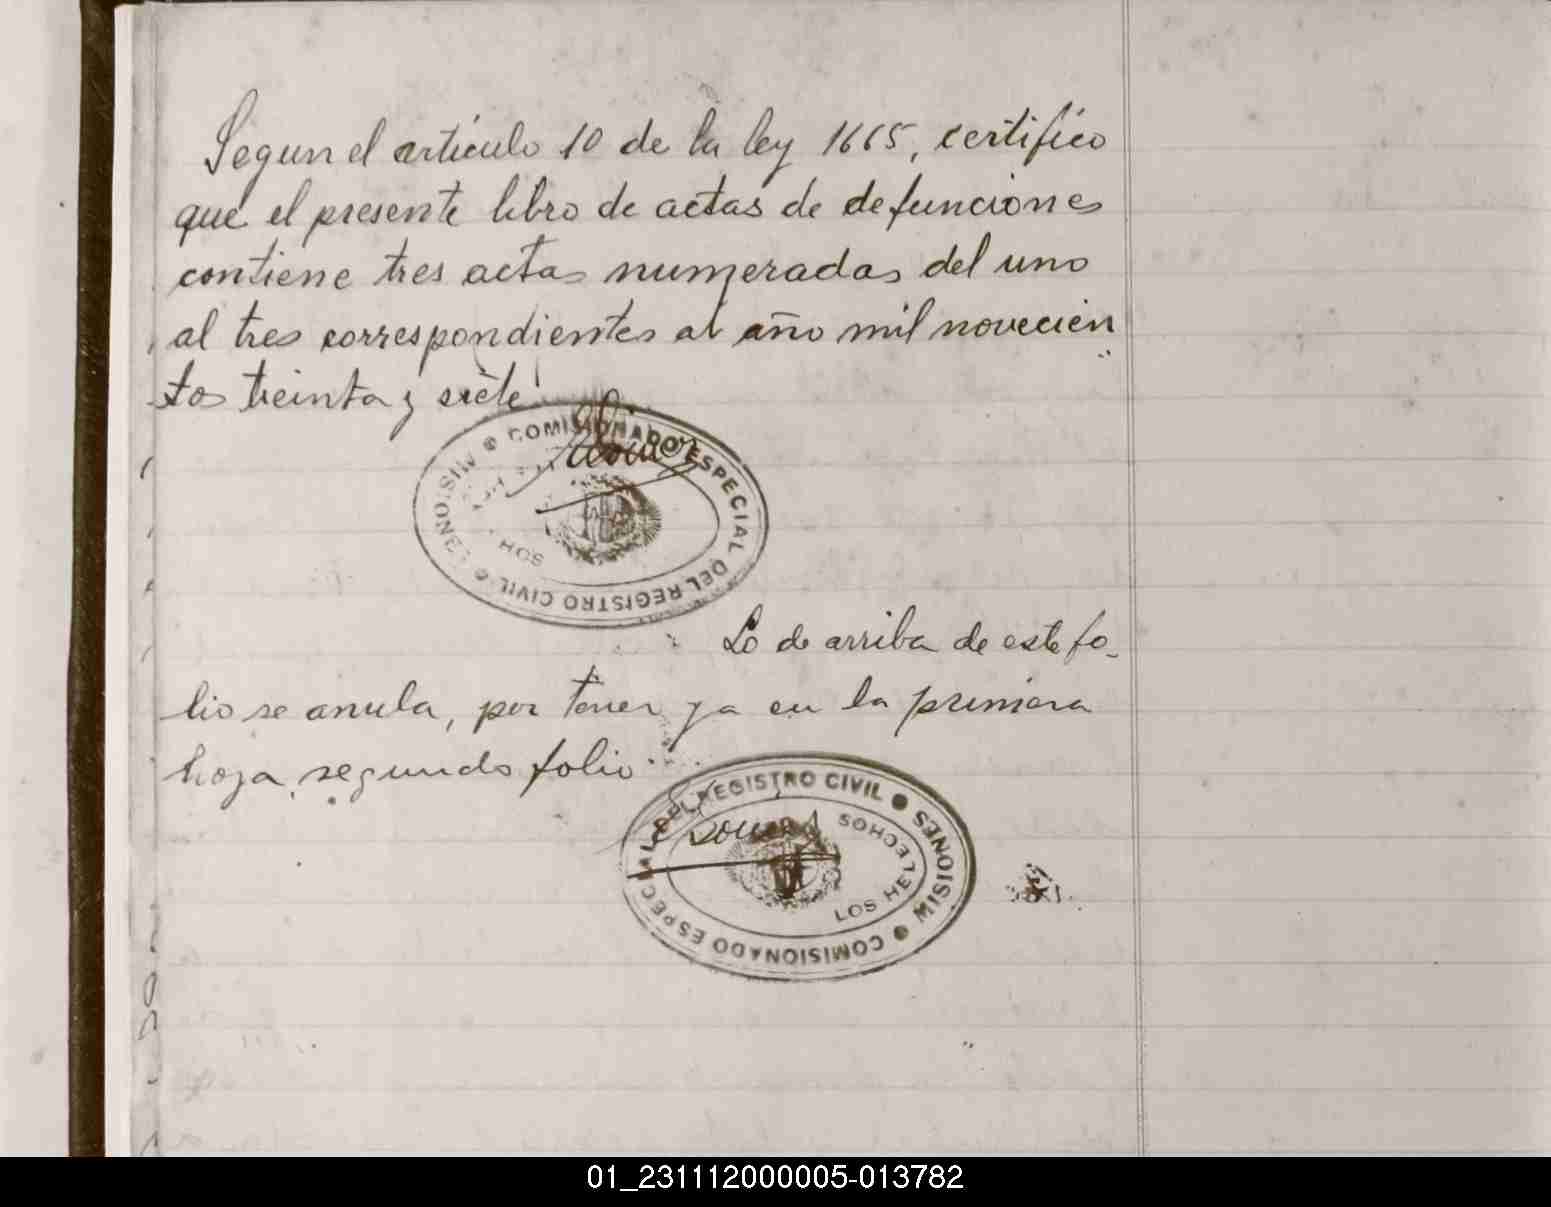 Segun el artículo 10 de la ley 1665, certifico
que el presente libro de actas de defunciones
contiene tres actas numeradas del uno
al tres correspondientes al año mil novecien
tos treinta y siete
COMISIONADO ESPECIAL DEL REGISTRO CIVIL MISIONES
Lo de arriba de este fo-
lio se anula, por tener ya en la primera
hoja segundo folio.
COMISIONADO ESPECIAL DEL REGISTRO CIVIL MISIONES
LOS HELECHOS
01_231112000005-013782